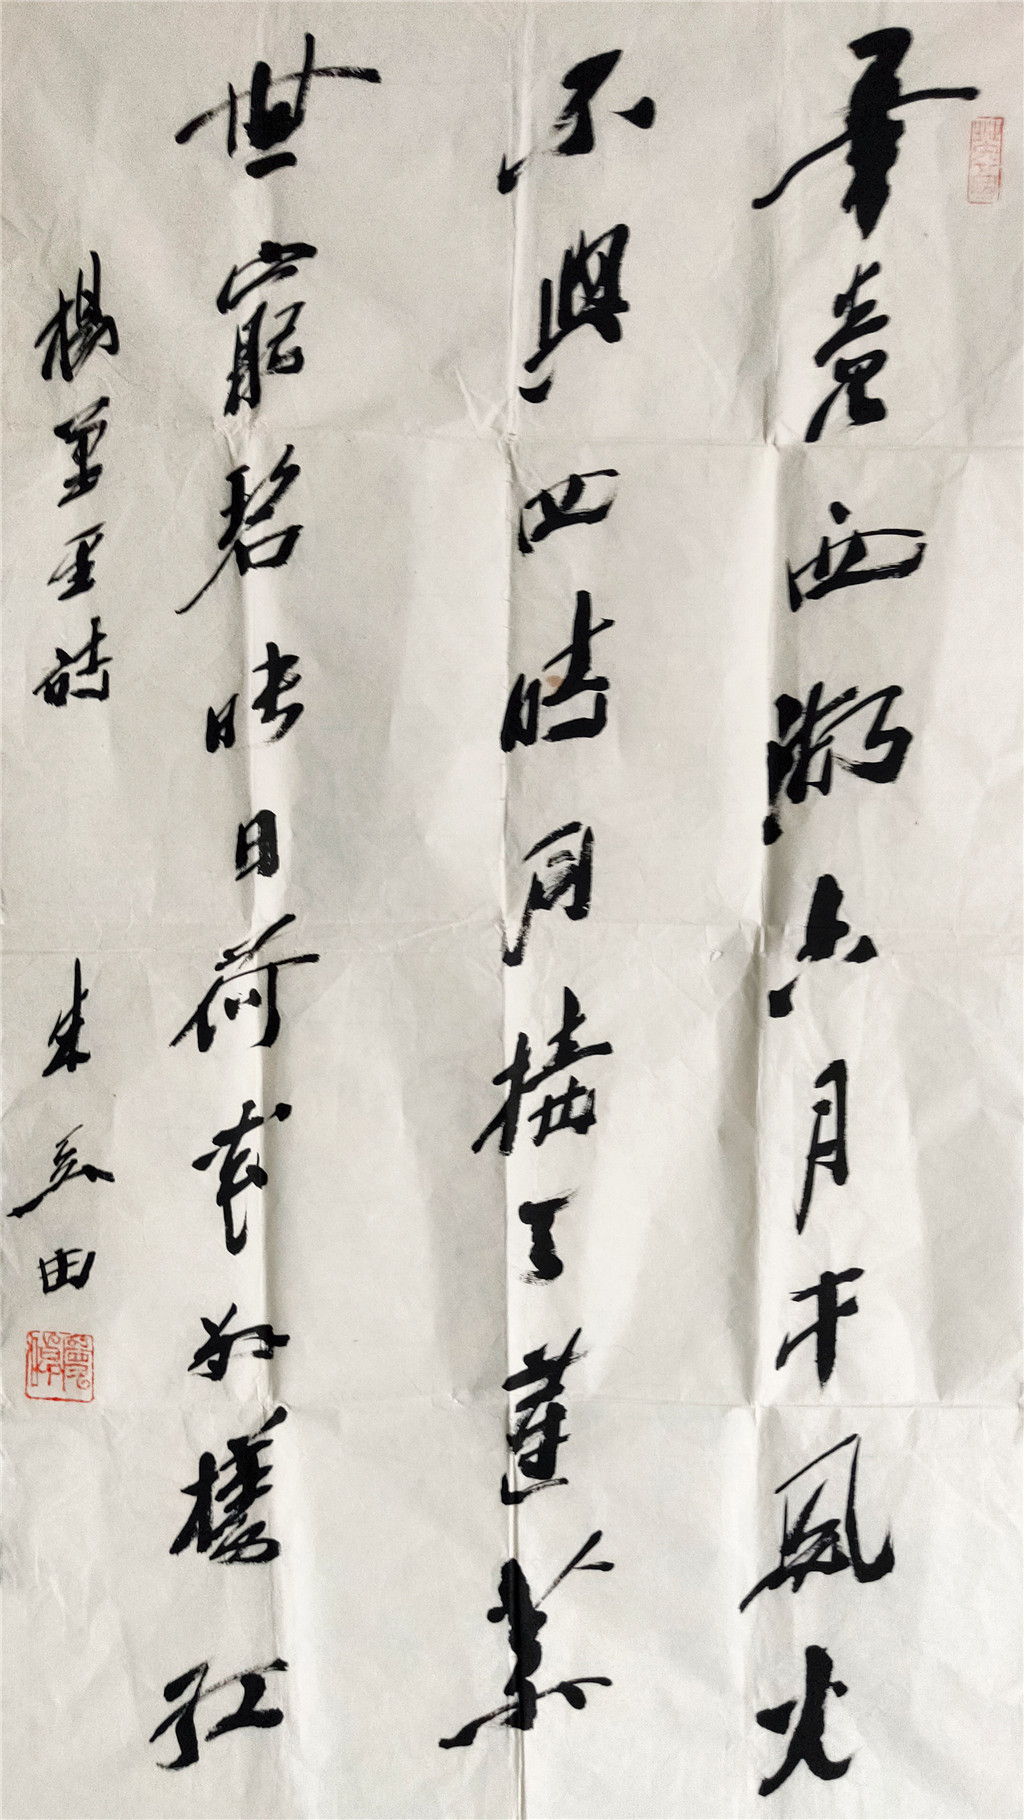 畢竟西湖六月中風光
不與四時同接天蓮葉
無窮碧映日荷花別樣紅
楊萬里詩
朱